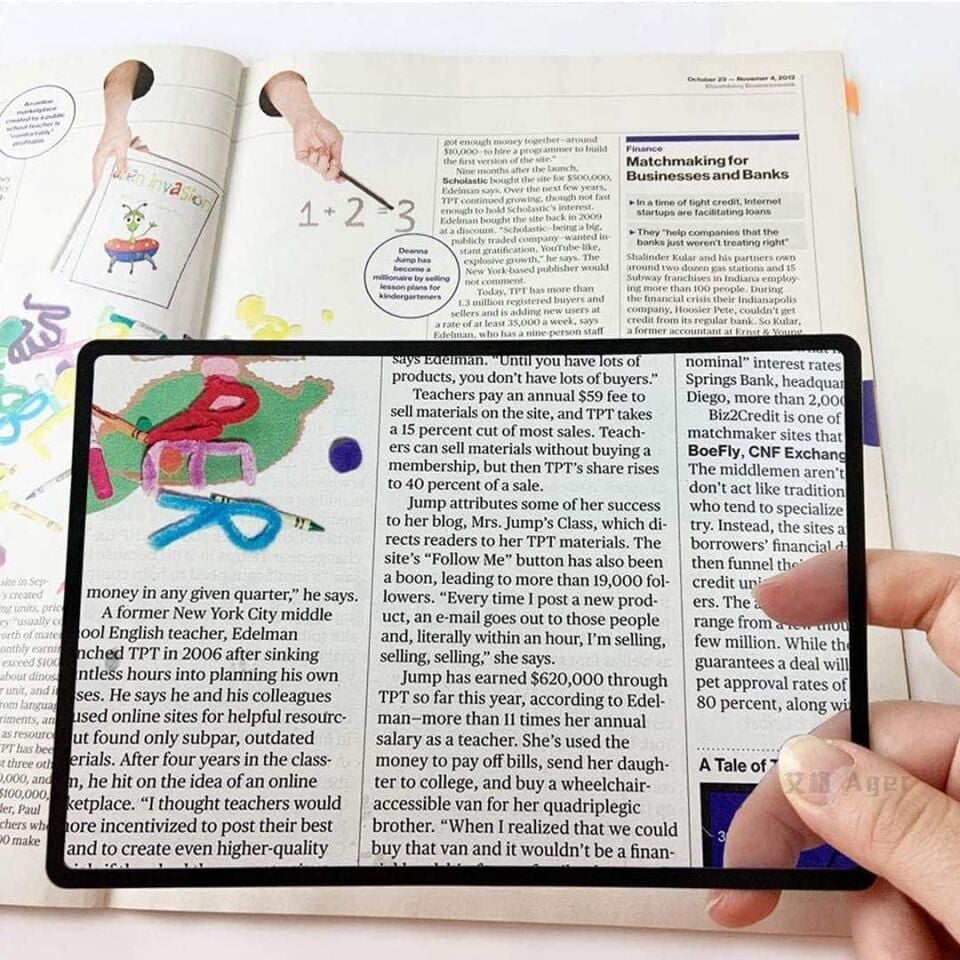 An online
marketplace
created by a public
school teacher is
"comfortably"
profitable
alien invasion
1 + 2 = 3
Deanna
Jump has
become a
millionaire by selling
lesson plans for
kindergarteners
October 29 — Novemer 4, 2012
Bloomberg Businessweek
got enough money together—around
$10,000—to hire a programmer to build
the first version of the site."
Nine months after the launch,
Scholastic bought the site for $500,000,
Edelman says. Over the next few years,
TPT continued growing, though not fast
enough to hold Scholastic's interest.
Edelman bought the site back in 2009
at a discount. "Scholastic—being a big,
publicly traded company—wanted in-
stant gratification, YouTube-like,
explosive growth," he says. The
New York-based publisher would
not comment.
Today, TPT has more than
1.3 million registered buyers and
sellers and is adding new users at
a rate of at least 35,000 a week, says
Edelman, who has a nine-person staff
Finance
Matchmaking for
Businesses and Banks
▸ In a time of tight credit, Internet
startups are facilitating loans
▸ They "help companies that the
banks just weren't treating right"
Shalinder Kular and his partners own
around two dozen gas stations and 15
Subway franchises in Indiana employ-
ing more than 100 people. During
the financial crisis their Indianapolis
company, Hoosier Pete, couldn't get
credit from its regular bank. So Kular,
a former accountant at Ernst & Young,
site in Sep-
's created
ng units, pric
"usually co
orth of mater
onthly earnin
exceed $100
about dinos
r unit, and i
rom languag
riments, an
as resource
PT has bee
t three oth
0,000, and
$100,000,
ler, Paul
chers wh
00 make
money in any given quarter," he says.
A former New York City middle
ool English teacher, Edelman
nched TPT in 2006 after sinking
ntless hours into planning his own
ses. He says he and his colleagues
used online sites for helpful resourc-
ut found only subpar, outdated
erials. After four years in the class-
m, he hit on the idea of an online
ketplace. "I thought teachers would
ore incentivized to post their best
and to create even higher-quality
says Edelman. "Until you have lots of
products, you don't have lots of buyers."
Teachers pay an annual $59 fee to
sell materials on the site, and TPT takes
a 15 percent cut of most sales. Teach-
ers can sell materials without buying a
membership, but then TPT's share rises
to 40 percent of a sale.
Jump attributes some of her success
to her blog, Mrs. Jump's Class, which di-
rects readers to her TPT materials. The
site's "Follow Me" button has also been
a boon, leading to more than 19,000 fol-
lowers. "Every time I post a new prod-
uct, an e-mail goes out to those people
and, literally within an hour, I'm selling,
selling, selling," she says.
Jump has earned $620,000 through
TPT so far this year, according to Edel-
man—more than 11 times her annual
salary as a teacher. She's used the
money to pay off bills, send her daugh-
ter to college, and buy a wheelchair-
accessible van for her quadriplegic
brother. "When I realized that we could
buy that van and it wouldn't be a finan-
nominal" interest rates
Springs Bank, headquar
Diego, more than 2,000
Biz2Credit is one of
matchmaker sites that
BoeFly, CNF Exchang
The middlemen aren't
don't act like tradition
who tend to specialize
try. Instead, the sites a
borrowers' financial d
then funnel the
credit uni
ers. The a
range from a few thou
few million. While the
guarantees a deal will
pet approval rates of
80 percent, along wi
A Tale of
3
艾格 Ager